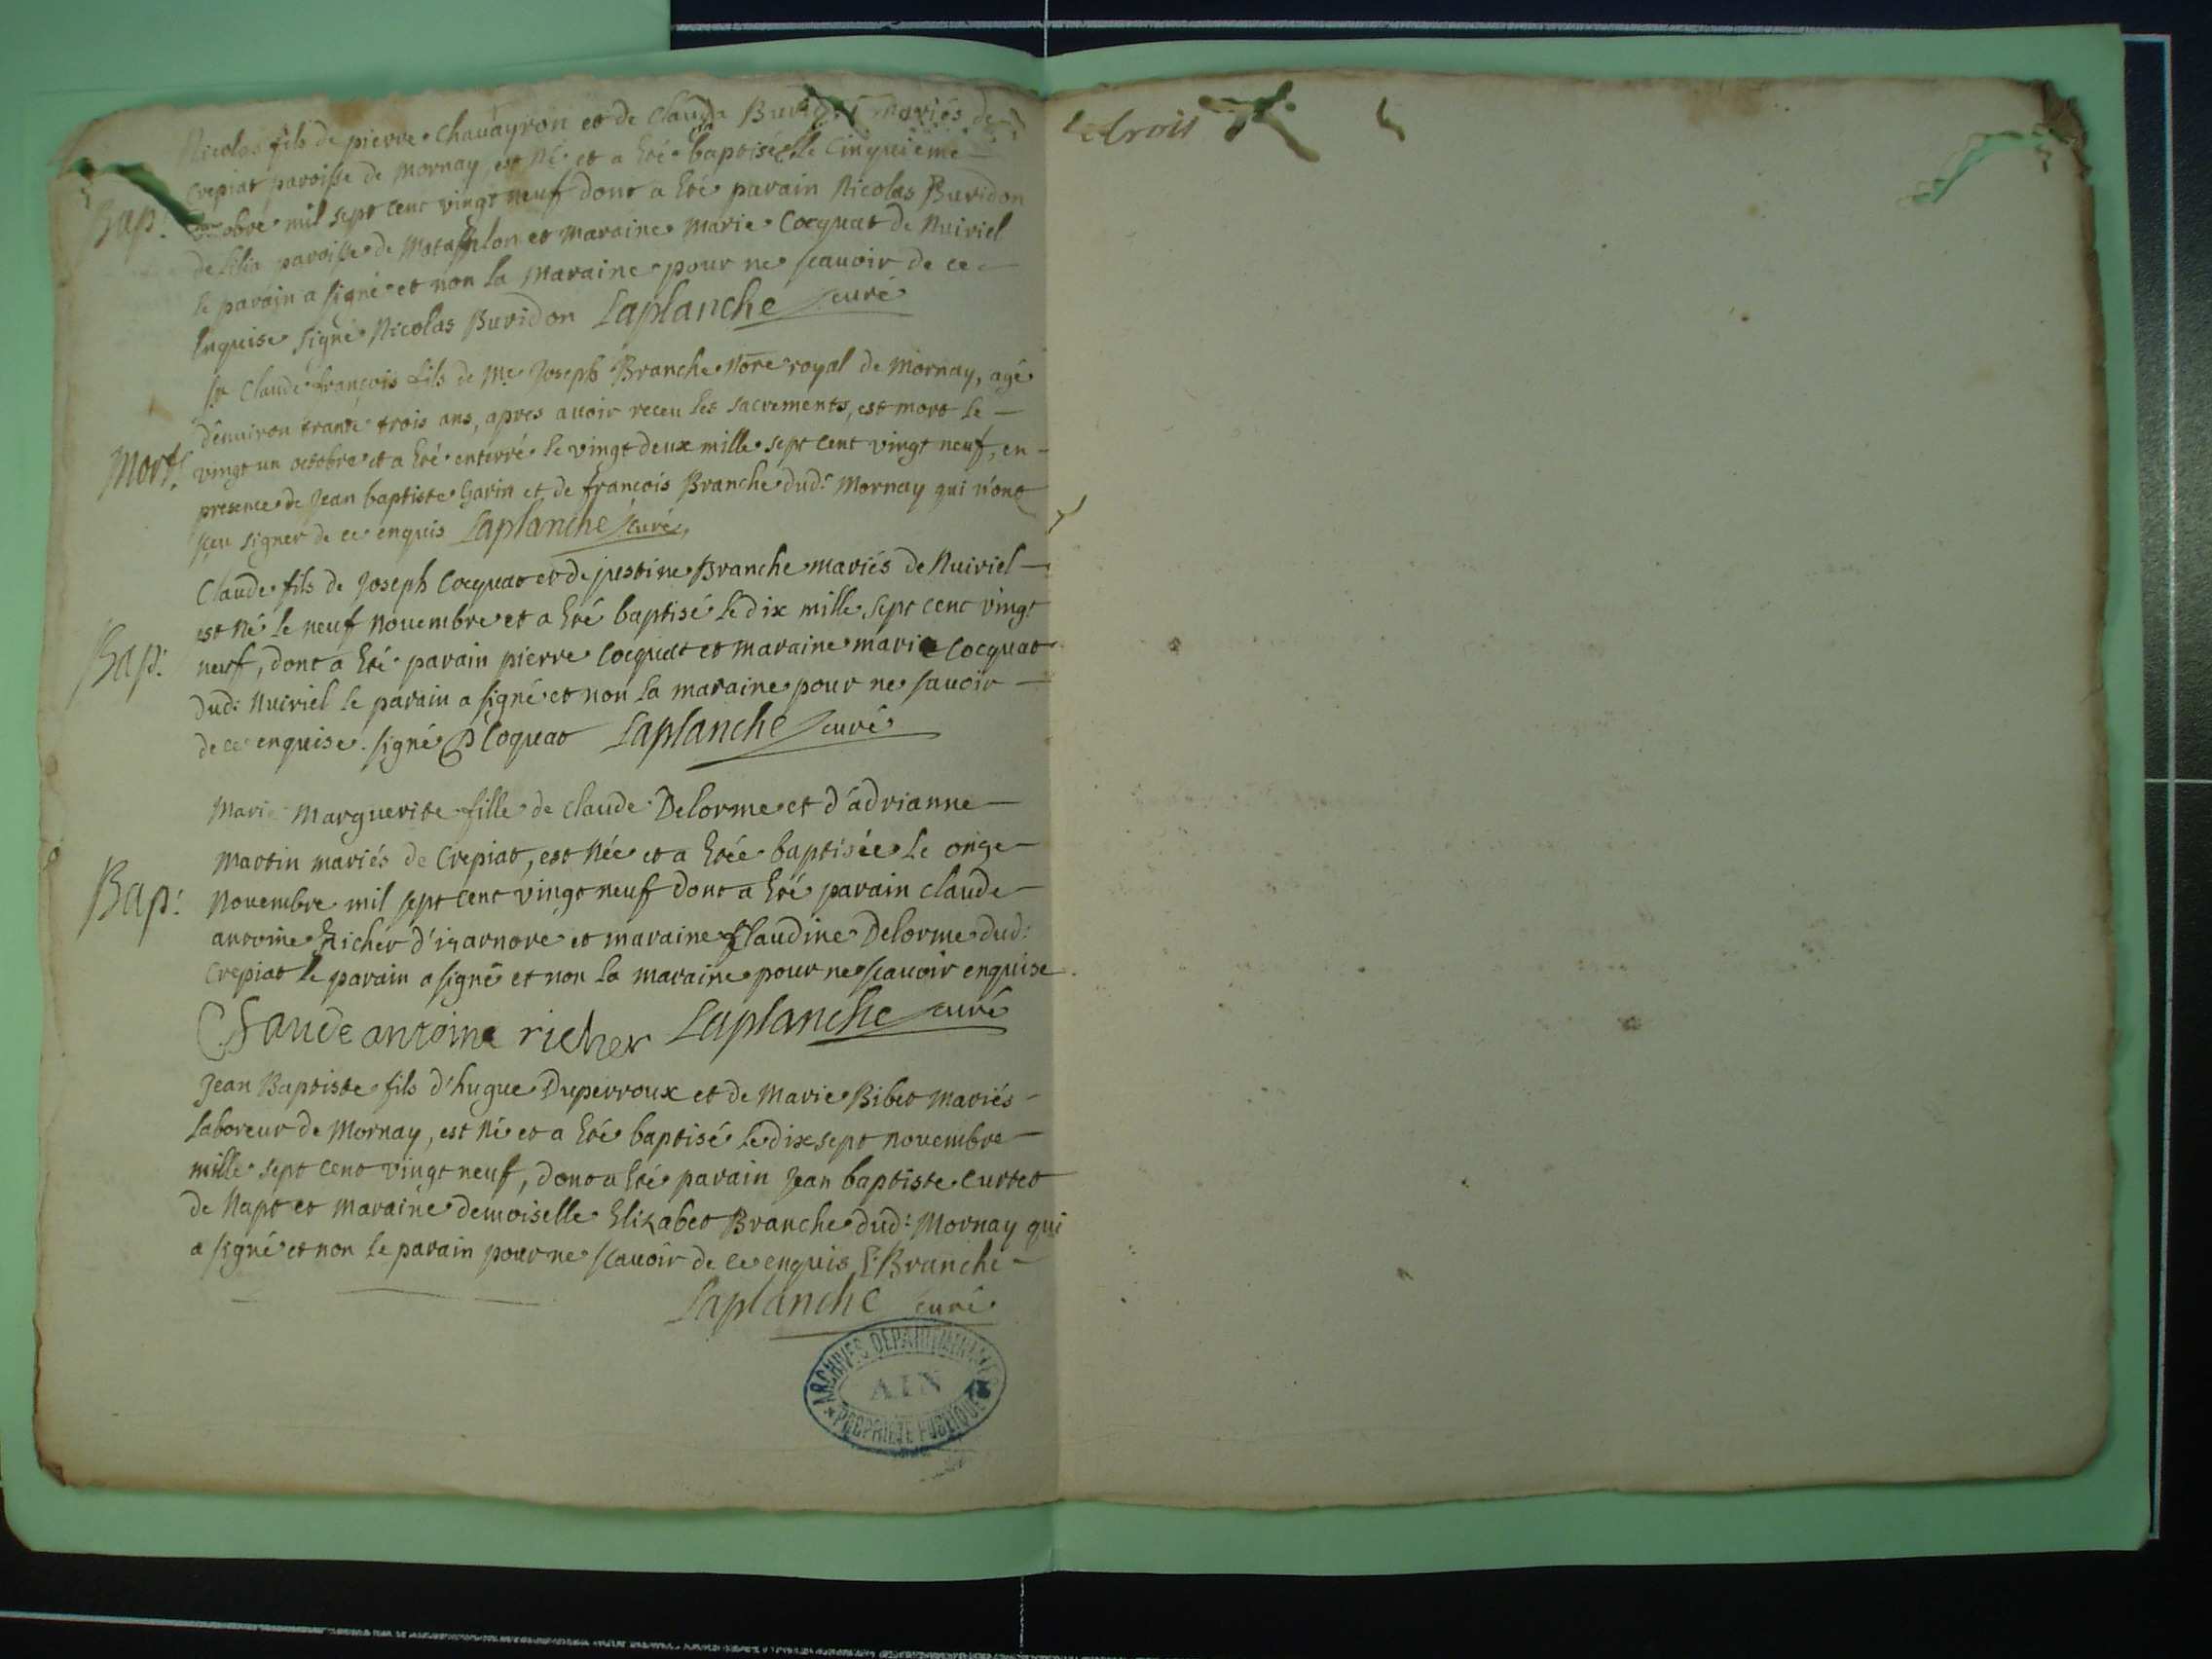 Nicolas fils de pierre Chauayron et de Clauda Buridon mariés de
Crepiat paroisse de Mornay, est Né et a Eté baptisé le Cinquieme
Bap: octobre mil sept cent vingt neuf dont a Eté parain Nicolas Buridon
paroisse de Matafelon et maraine Marie Cocquat de Nuiriel
le parain a signé et non la Maraine pour ne scauoir de ce
Enquise signé Nicolas Buridon Laplanche curé
Sr Claude françois fils de Me Joseph Branche Nore royal de Mornay, agé
d'enuiron trante trois ans, apres auoir receu les sacrements, est mort le
Mort. vingt un octobre et a Eté enterré le vingt deux mille sept cent vingt neuf, en
presence de Jean baptiste Garin et de francois Branche dud: Mornay qui n'ont
sceu signer de ce enquis Laplanche curé,
Claude fils de Joseph Cocquat et de justine Branche mariés de Nuiriel
est Né le neuf Nouembre et a Eté baptisé le dix mille sept cent vingt
Bap: neuf, dont a Eté parain pierre Cocquat et maraine marie Cocquat
dud: Nuiriel le parain a signé et non la maraine pour ne sauoir
de ce enquise. signé P Coquat Laplanche curé
Marie Marguerite fille de claude Delorme et d'adrianne
Martin mariés de Crepiat, est Née et a Etée baptisée le onze
Bap: Nouembre mil sept cent vingt neuf dont a Eté parain claude
antoine Richer d'izarnore et maraine Claudine Delorme dud:
Crepiat le parain a signé et non la maraine pour ne scauoir enquise
Claude antoine richer Laplanche curé
Jean Baptiste fils d'hugue Duperroux et de Marie Bibet Mariés
Laboreur de Mornay, est Né et a Eté baptisé le dix sept nouembre
mille sept cent vingt neuf, dont a Eté parain Jean baptiste Curtet
de Napt et Maraine demoiselle Elizabet Branche dud: Mornay qui
a signé et non le parain pour ne scauoir de ce enquis E: Branche
Laplanche curé
ARCHIVES DEPARTEMENTALES
AIN
PROPRIETE PUBLIQUE
droit